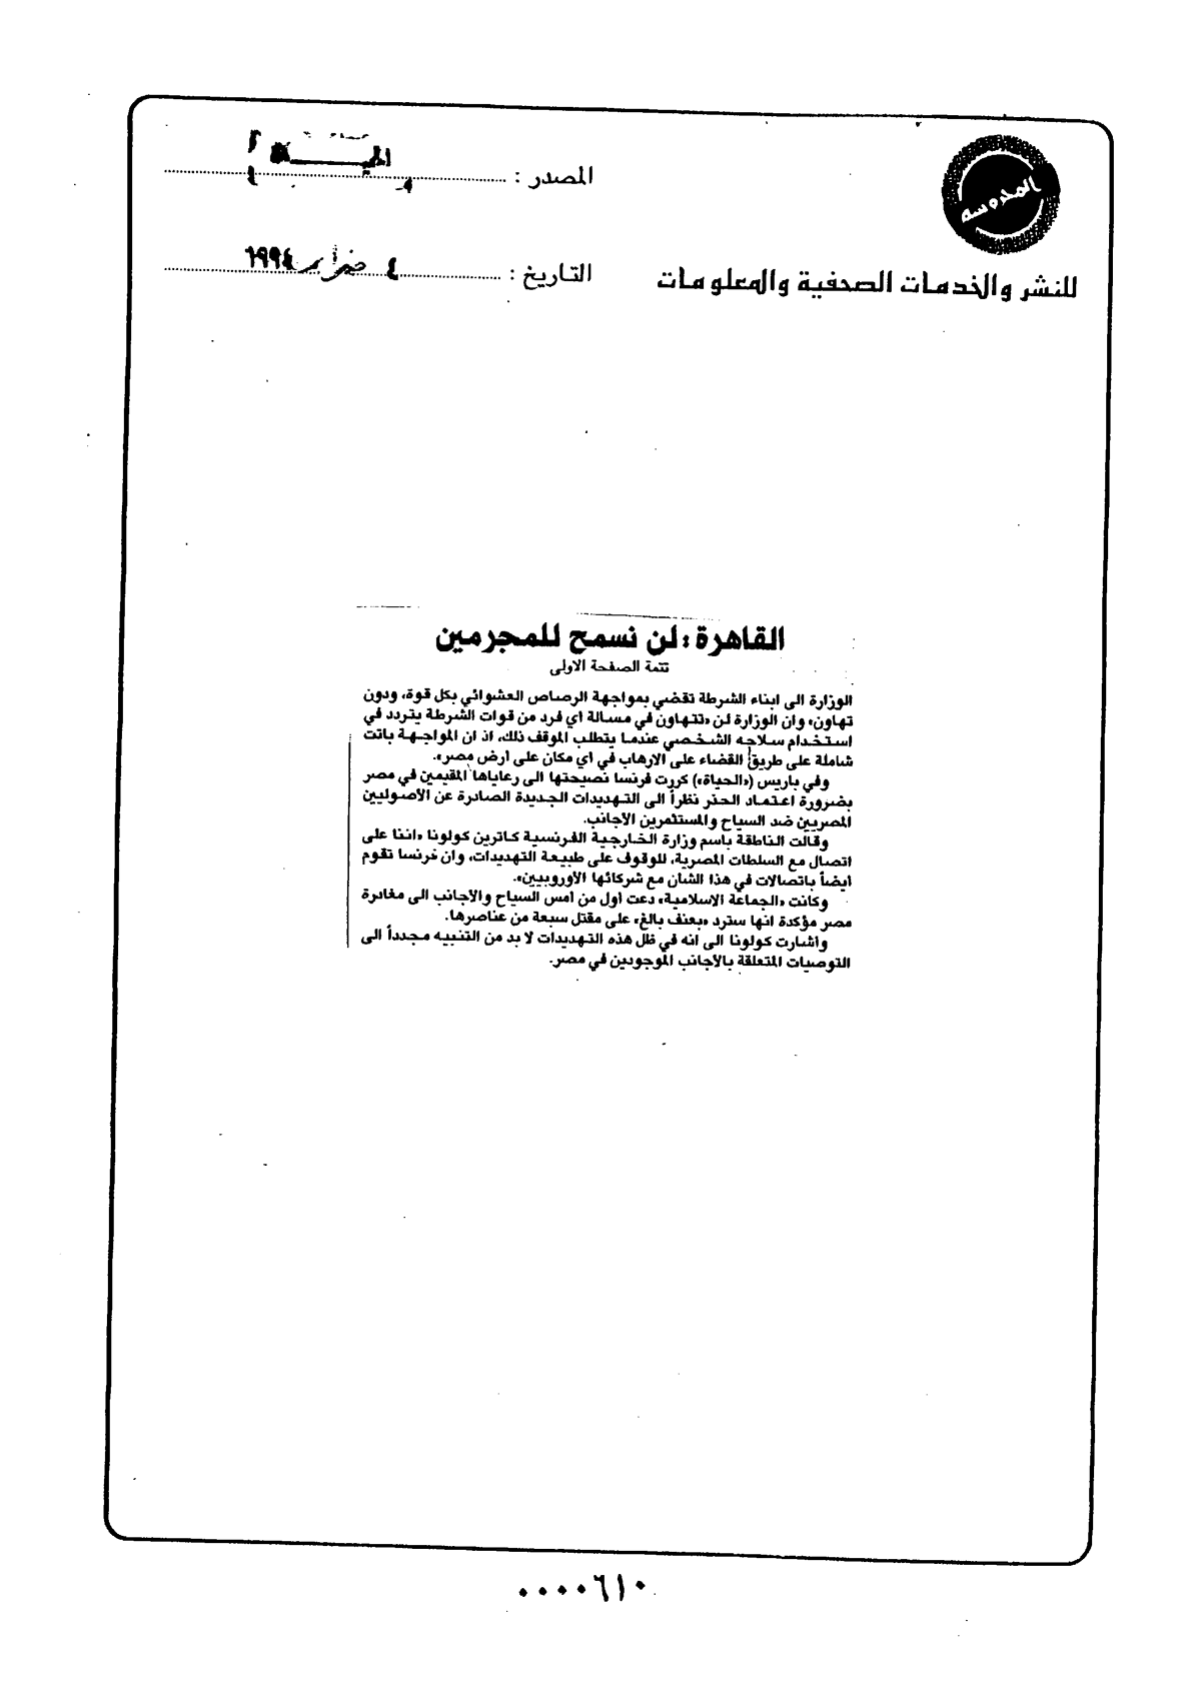 المحروسة
للنشر والخدمات الصحفية والمعلومات
المصدر : الحياة
التاريخ : ٤ فبراير ١٩٩٤
القاهرة : لن نسمح للمجرمين
تتمة الصفحة الاولى
الوزارة الى ابناء الشرطة تقضي بمواجهة الرصاص العشوائي بكل قوة، ودون
تهاون» وان الوزارة لن «تتهاون في مسالة اي فرد من قوات الشرطة يتردد في
استخدام سلاحه الشخصي عندما يتطلب الموقف ذلك، اذ ان المواجهة باتت
شاملة على طريق القضاء على الارهاب في اي مكان على أرض مصر».
وفي باريس («الحياة») كررت فرنسا نصيحتها الى رعاياها المقيمين في مصر
بضرورة اعتماد الحذر نظراً الى التهديدات الجديدة الصادرة عن الأصوليين
المصريين ضد السياح والمستثمرين الأجانب.
وقالت الناطقة باسم وزارة الخارجية الفرنسية كاترين كولونا «اننا على
اتصال مع السلطات المصرية، للوقوف على طبيعة التهديدات، وان فرنسا تقوم
ايضاً باتصالات في هذا الشان مع شركائها الأوروبيين».
وكانت «الجماعة الاسلامية» دعت اول من أمس السياح والأجانب الى مغادرة
مصر مؤكدة انها سترد «بعنف بالغ» على مقتل سبعة من عناصرها.
واشارت كولونا الى انه في ظل هذه التهديدات لا بد من التنبيه مجدداً الى
التوصيات المتعلقة بالأجانب الموجودين في مصر.
٠٠٠٠٦١٠